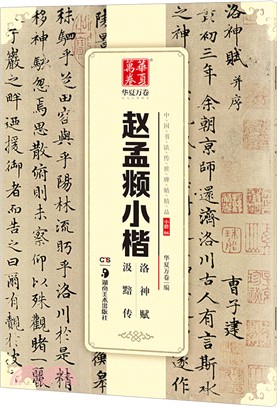 洛神賦 并序
曹子建
初三年余朝京師還濟洛川古人有言斯水
萬卷
華夏
华夏万卷
中国书法传世碑帖精品
赵孟頫小楷
洛神赋
汲黯传
华夏万卷 编
湖南美术出版社
田容與乎陽林流眄乎洛川於是精
移神駭忽焉思散俯則未察仰以殊觀睹一麗
于巖之畔迺援御者而告之曰爾有覿